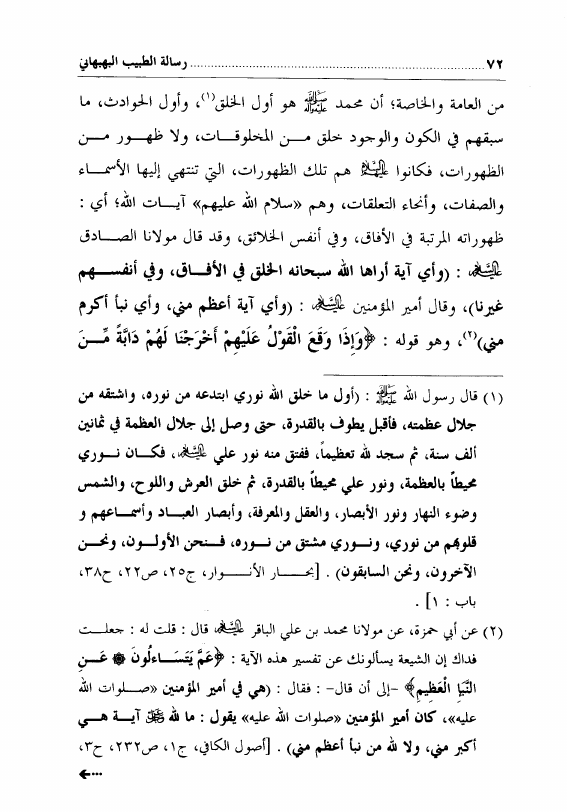 ٧٢ ........................................................................ رسالة الطبيب البهبهاني
من العامة والخاصة؛ أن محمد ﷺ هو أول الخلق(١)، وأول الحوادث، ما
سبقهم في الكون والوجود خلق مـــن المخلوقـــات، ولا ظهـــور مـــن
الظهورات، فكانوا عليهم السلام هم تلك الظهورات، التي تنتهي إليها الأسمـــاء
والصفات، وأنحاء التعلقات، وهم «سلام الله عليهم» آيـــات الله؛ أي :
ظهوراته المرتبة في الأفاق، وفي أنفس الخلائق، وقد قال مولانا الصـــادق
عليه السلام : (وأي آية أراها الله سبحانه الخلق في الأفـــاق، وفي أنفســـهم
غيرنا)، وقال أمير المؤمنين عليه السلام : (وأي آية أعظم مني، وأي نبأ أكرم
مني)(٢)، وهو قوله : ﴿وَإِذَا وَقَعَ الْقَوْلُ عَلَيْهِمْ أَخْرَجْنَا لَهُمْ دَابَّةً مِّـــنَ
(١) قال رسول الله ﷺ : (أول ما خلق الله نوري ابتدعه من نوره، واشتقه من
جلال عظمته، فأقبل يطوف بالقدرة، حتى وصل إلى جلال العظمة في ثمانين
ألف سنة، ثم سجد لله تعظيماً، ففتق منه نور علي عليه السلام، فكـــان نـــوري
محيطاً بالعظمة، ونور علي محيطاً بالقدرة، ثم خلق العرش واللوح، والشمس
وضوء النهار ونور الأبصار، والعقل والمعرفة، وأبصار العبـــاد وأسمـــاعهم و
قلوبهم من نوري، ونـــوري مشتق من نـــوره، فـــنحن الأولـــون، ونحـــن
الآخرون، ونحن السابقون) . [بحـــار الأنـــوار، ج٢٥، ص٢٢، ح٣٨،
باب : ١] .
(٢) عن أبي حمزة، عن مولانا محمد بن علي الباقر عليه السلام قال : قلت له : جعلـــت
فداك إن الشيعة يسألونك عن تفسير هذه الآية : ﴿عَمَّ يَتَسَـــاءلُونَ ۞ عَـــنِ
النَّبَإِ الْعَظِيمِ﴾ -إلى أن قال- : فقال : (هي في أمير المؤمنين «صلـــوات الله
عليه»، كان أمير المؤمنين «صلوات الله عليه» يقول : ما لله ﷻ آيـــة هـــي
أكبر مني، ولا لله من نبأ أعظم مني) . [أصول الكافي، ج١، ص٢٣٢، ح٣،
...←